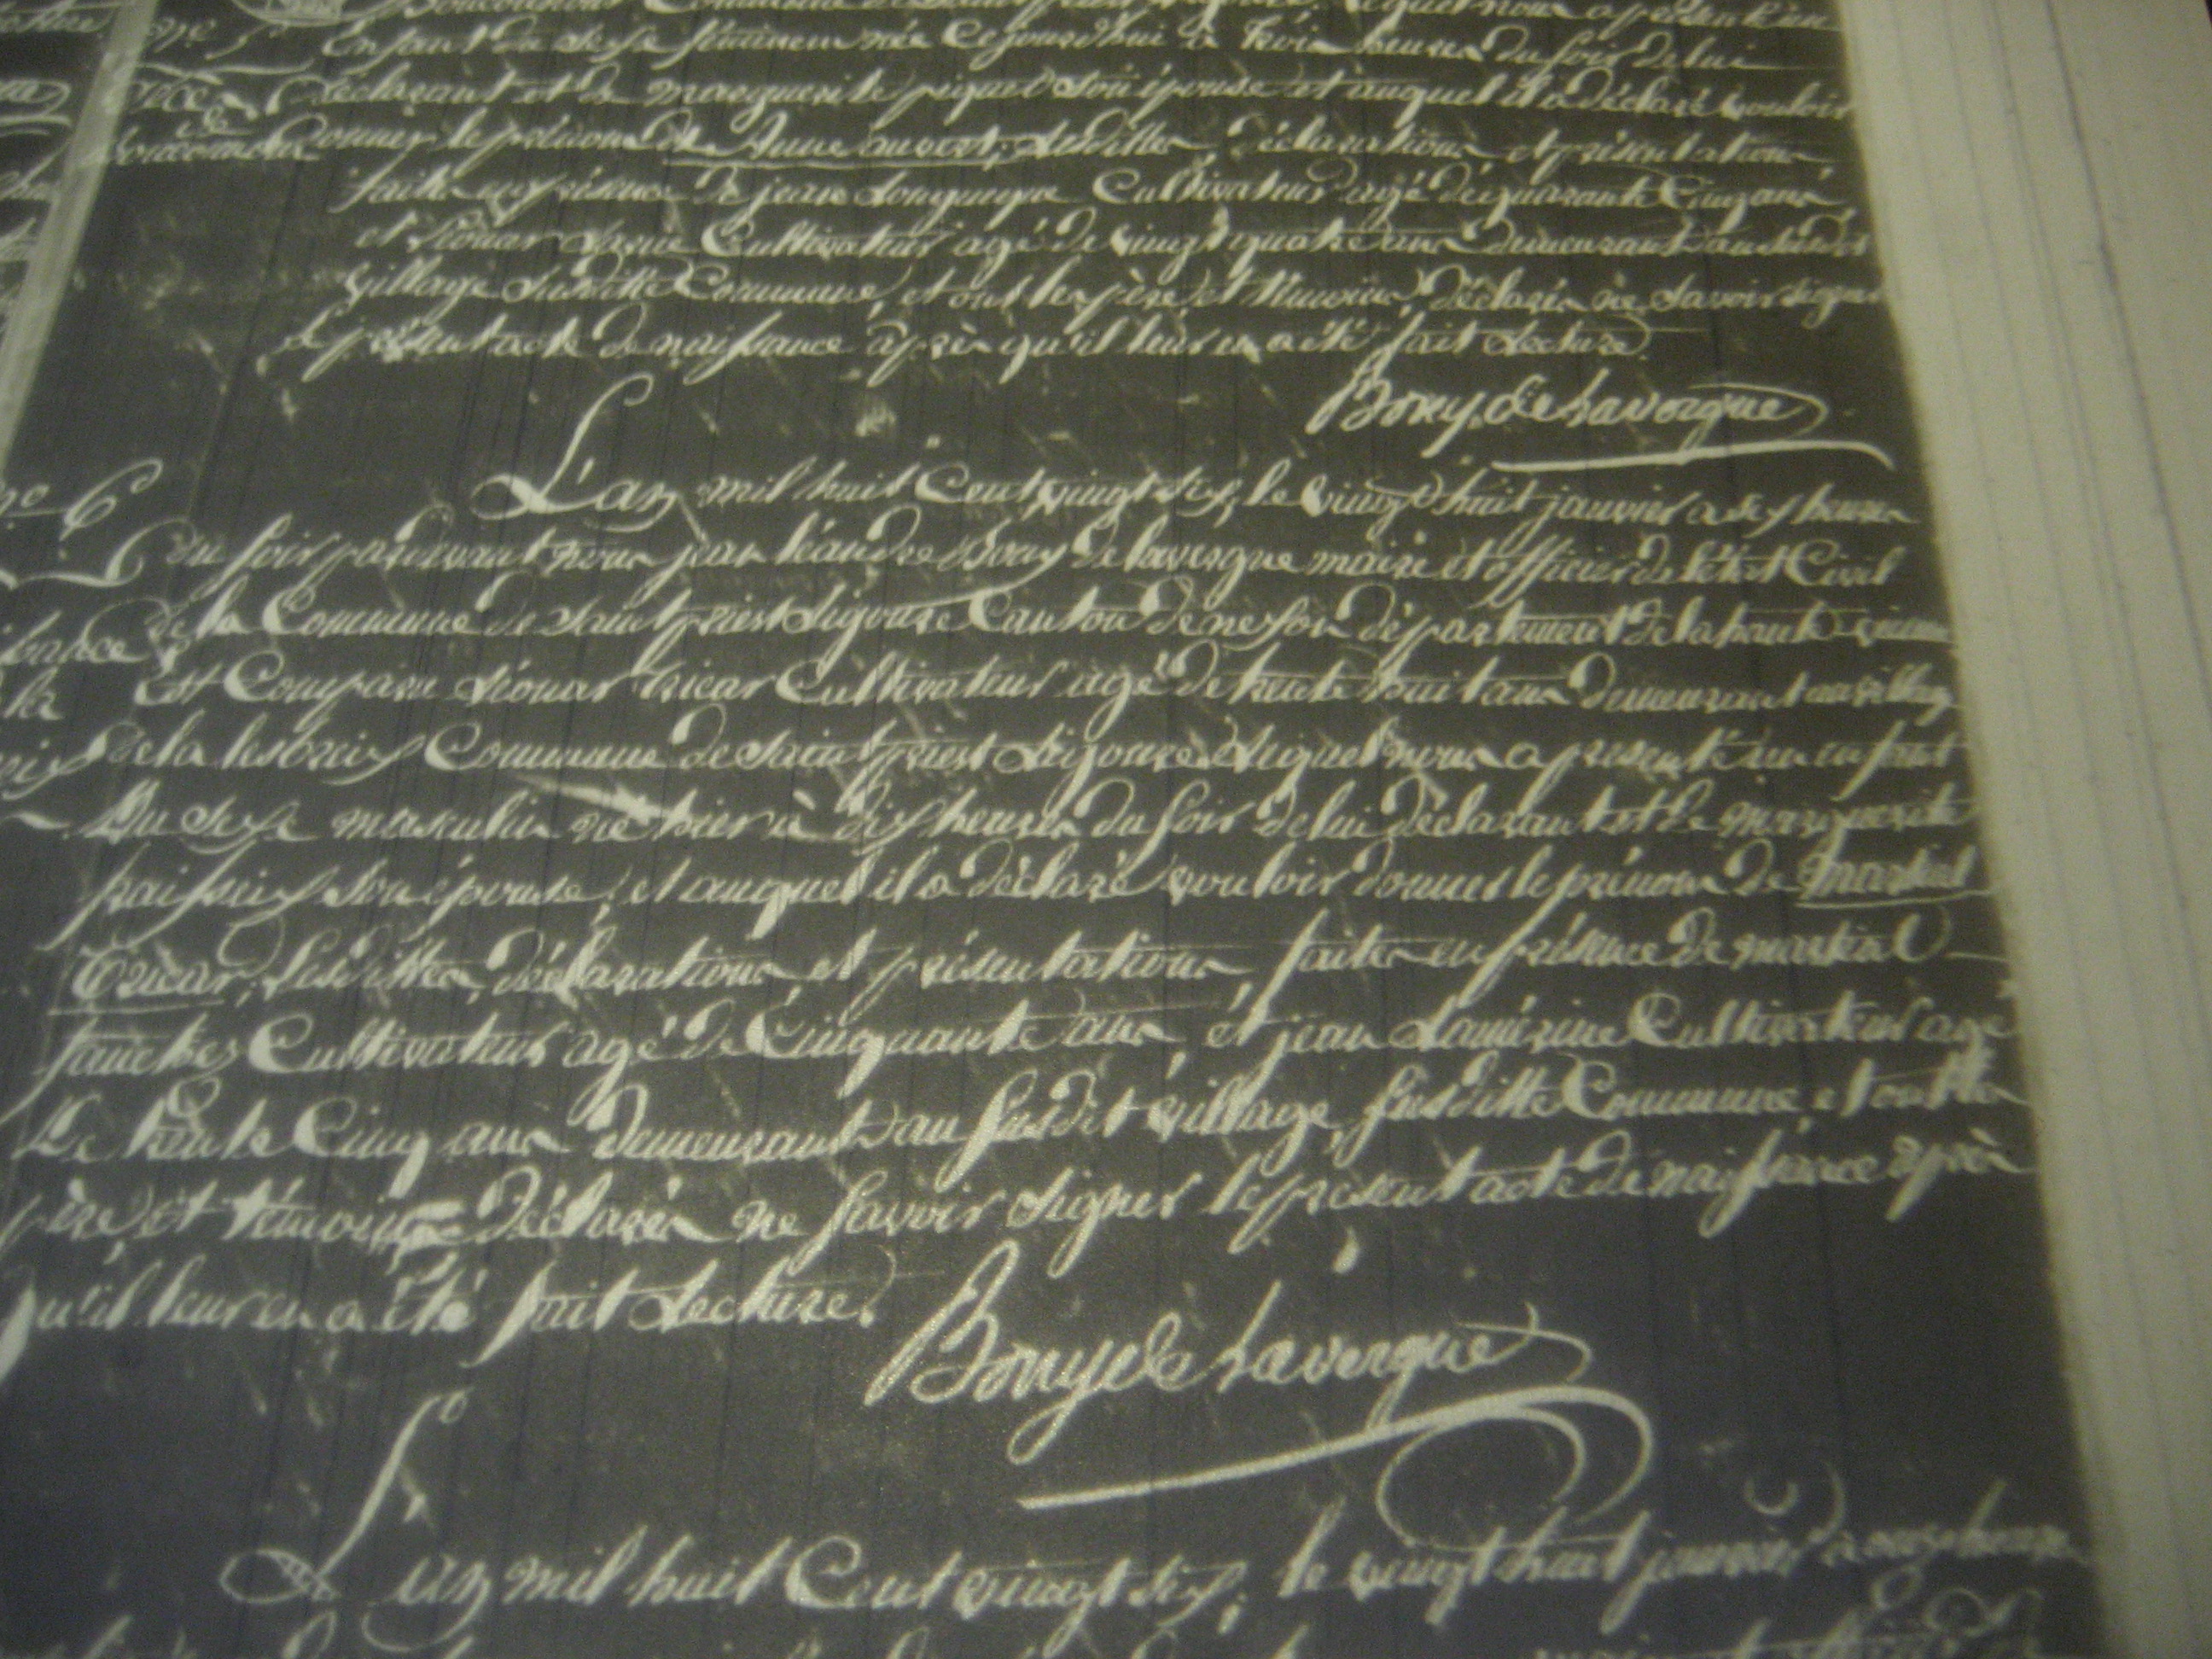 Enfant du sexe féminin née Cejourd'hui à trois heures du soir de lui
déclarant et de marguerite piquet son épouse et auquel il a déclaré vouloir
donner le prénom de Anne lesdittes déclarations et présentations
faites en présence de jean Cultivateur agé de quarante Cinq ans
et Léonar Cultivateur agé de vingt quatre ans demeurant au susdit
village susditte Commune, et ont les père et témoins déclarés ne savoir signer
le présent acte de naissance après qu'il leur en a été fait Lecture
Bony de Lavergne
nº 6
L'an mil huit Cent vingt six, le vingt huit janvier a six heures
du soir pardevant nous jean léandre Bony de lavergne maire et officier de l'état Civil
de la Commune de Saint priest Ligoure Canton de nexon département de la haute vienne
Est Comparu Léonar tricar Cultivateur agé de trente huit ans demeurant au village
de la Commune de Saint priest Ligoure Lequel nous a présenté un enfant
Du sexe masculin né hier à dix heures du soir de lui déclarant et de marguerite
son épouse, et auquel il a déclaré vouloir donner le prénom de martial
tricar, lesdittes déclarations et présentations faites en présence de martial
Cultivateur agé de Cinquante ans, et jean Lamérine Cultivateur agé
De trente Cinq ans demeurant au susdit village, susditte Commune et ont les
père et témoins déclarés ne savoir signer le présent acte de naissance après
qu'il leur en a été fait Lecture.
Bony de Lavergne
L'an mil huit Cent vingt six, le vingt huit janvier à heures